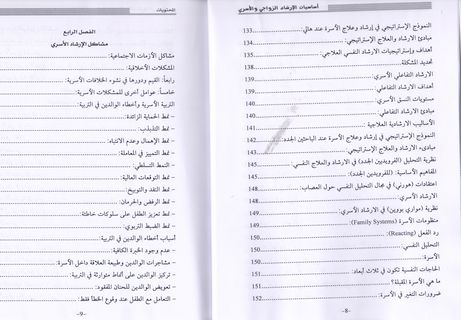 أساسيات الإرشاد الزواجي والأسري
النموذج الإستراتيجي في إرشاد وعلاج الأسرة عند هالي: 133
مبادئ الإرشاد والعلاج الإستراتيجي: 134
أهداف وإستراتيجيات الارشاد النفسي العلاجي: 135
تحديد المشكلة: 138
الارشاد التفاعلي الأسري: 138
أهداف الارشاد التفاعلي: 139
مستويات النسق الأسري: 140
مبادئ الارشاد التفاعلي: 140
الأساليب الارشادية العلاجية: 141
النموذج الإستراتيجي في إرشاد وعلاج الأسرة عند الباحثين الجدد: 142
مبادىء الارشاد والعلاج الإستراتيجي: 143
نظرية التحليل (الفرويديين الجدد) في الارشاد والعلاج النفسي: 145
المفاهيم الأساسية: (للفرويديين الجدد): 145
اعتقادات (هورني) في مجال التحليل النفسي حول العصاب: 148
الارشاد الأسري: 148
نظرية (موراي بووين) في الارشاد الأسري: 149
منظومات الأسرة (Family Systems): 149
رد الفعل (Reacting): 150
التحليل النفسي: 150
الأسرة: 150
الحاجات النفسية تكون في ثلاث أبعاد: 151
ما هي الأسرة المقبلة؟ 151
ضرورات التغير في الأسرة: 152
-8-
المحتويات
الفصل الرابع
مشاكل الإرشاد الأسري
مشاكل الأزمات الاجتماعية:
المشكلات الأخلاقية:
رابعاً: القيم ودورها في نشوء الخلافات الأسرية:
خامساً: عوامل أخرى للمشكلات الأسرية:
التربية الأسرية وأخطاء الوالدين في التربية:
- نمط الحماية الزائدة:
- نمط التذبذب:
- نمط الإهمال وعدم الانتباه:
- نمط التمييز في المعاملة:
- النمط التسلطي:
- نمط التوقعات العالية:
- نمط النقد والتوبيخ:
- نمط الرفض والحرمان:
- نمط تعزيز الطفل على سلوكات خاطئة:
- نمط الضبط التربوي:
أسباب أخطاء الوالدين في التربية:
- عدم وجود الخبرة الكافية:
- مشاجرات الوالدين وطبيعة العلاقة داخل الأسرة:
- تركيز الوالدين على أنماط متوارثة في التربية:
- تعويض الوالدين للحنان المفقود:
- التعامل مع الطفل عند وقوع الخطأ فقط:
-9-